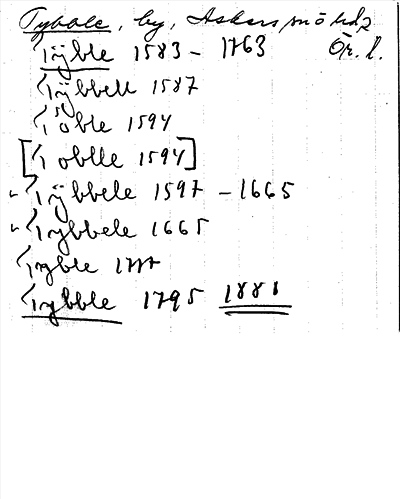 Tybble, by, Askers sn ö hd,
Tÿble 1583 - 1763 Ör. l.
Tÿbbell 1587
Töble 1594
[Toblle 1594]
Tÿbbele 1597 - 1665
Tybbele 1665
Tyble 1777
Tybble 1795 1881